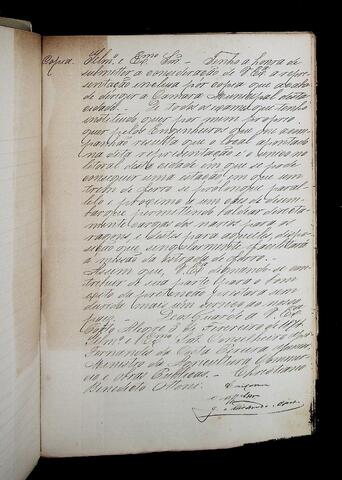 Copia. Illm.º e Exmo Snr. – Tenho a honra de
submetter a consideração de V. Exª a repre-
sentação inclusa por copia que acaba
de dirigir a Camara Municipal desta
cidade. De todos os exames que tenho
instituido quer por mim proprio
quer pelos Engenheiros que me acom-
panhão resulta que o local apontado
na dita representação é o unico no
litoral desta cidade em que se pode
conseguir uma estação em que um
trem de ferro se prolongue paral-
lelo e proximo a um caes de desem-
barque permittindo baldear directa-
mente cargas dos navios para os
wagons, e destes para aquelles dispo-
sição que singularmente facilitará
a missão da estrada de ferro.
Assim que, V. Exª dignando-se con-
tribuir de sua parte para o bom
exito da pretenção
mais um serviço ao nosso
paiz. – Deos Guarde a V. Exª
6 Fevereiro de 1874
Illm.º e Exmo Snr. Conselheiro José
Fernandes da Costa Pereira Junior
Ministro da Agricultura Commer-
cio e Obras Publicas. – Christiano
Benedicto Ottoni.